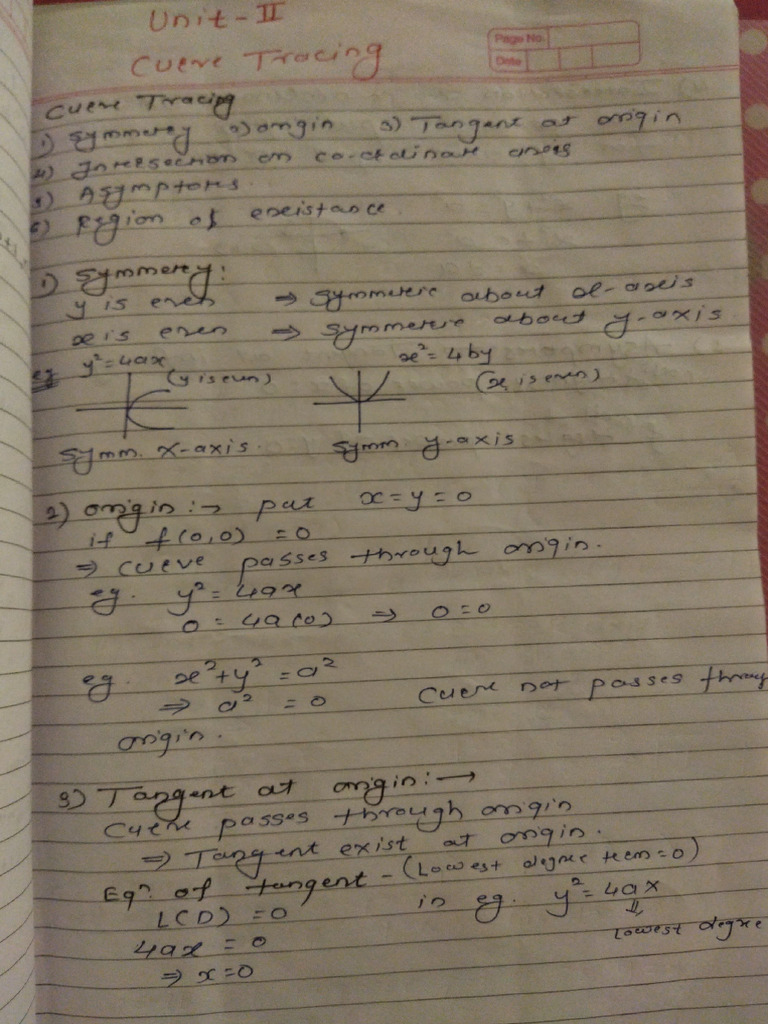 Unit-II
Page No.
Date
Curve Tracing
Curve Tracing
1) Symmetry 2) origin 3) Tangent at origin
4) Intersection on co-ordinate axes
5) Asymptotes.
6) Region of existance.
1) Symmetry:
y is even ⇒ Symmetric about x-axis
x is even ⇒ Symmetric about y-axis
eg y² = 4ax x² = 4by
(y is even) (x is even)
Symm. x-axis. Symm y-axis
2) origin :→ put x = y = 0
if f(0,0) = 0
⇒ Curve passes through origin.
eg. y² = 4ax
0 = 4a(0) ⇒ 0=0
eg. x² + y² = a²
⇒ a² = 0 Curve not passes throug
origin.
3) Tangent at origin:→
Curve passes through origin
⇒ Tangent exist at origin.
Eqⁿ. of tangent - (Lowest degree term = 0)
L(D) = 0 in eg. y² = 4ax
4ax = 0 ⇓ Lowest degree
⇒ x=0